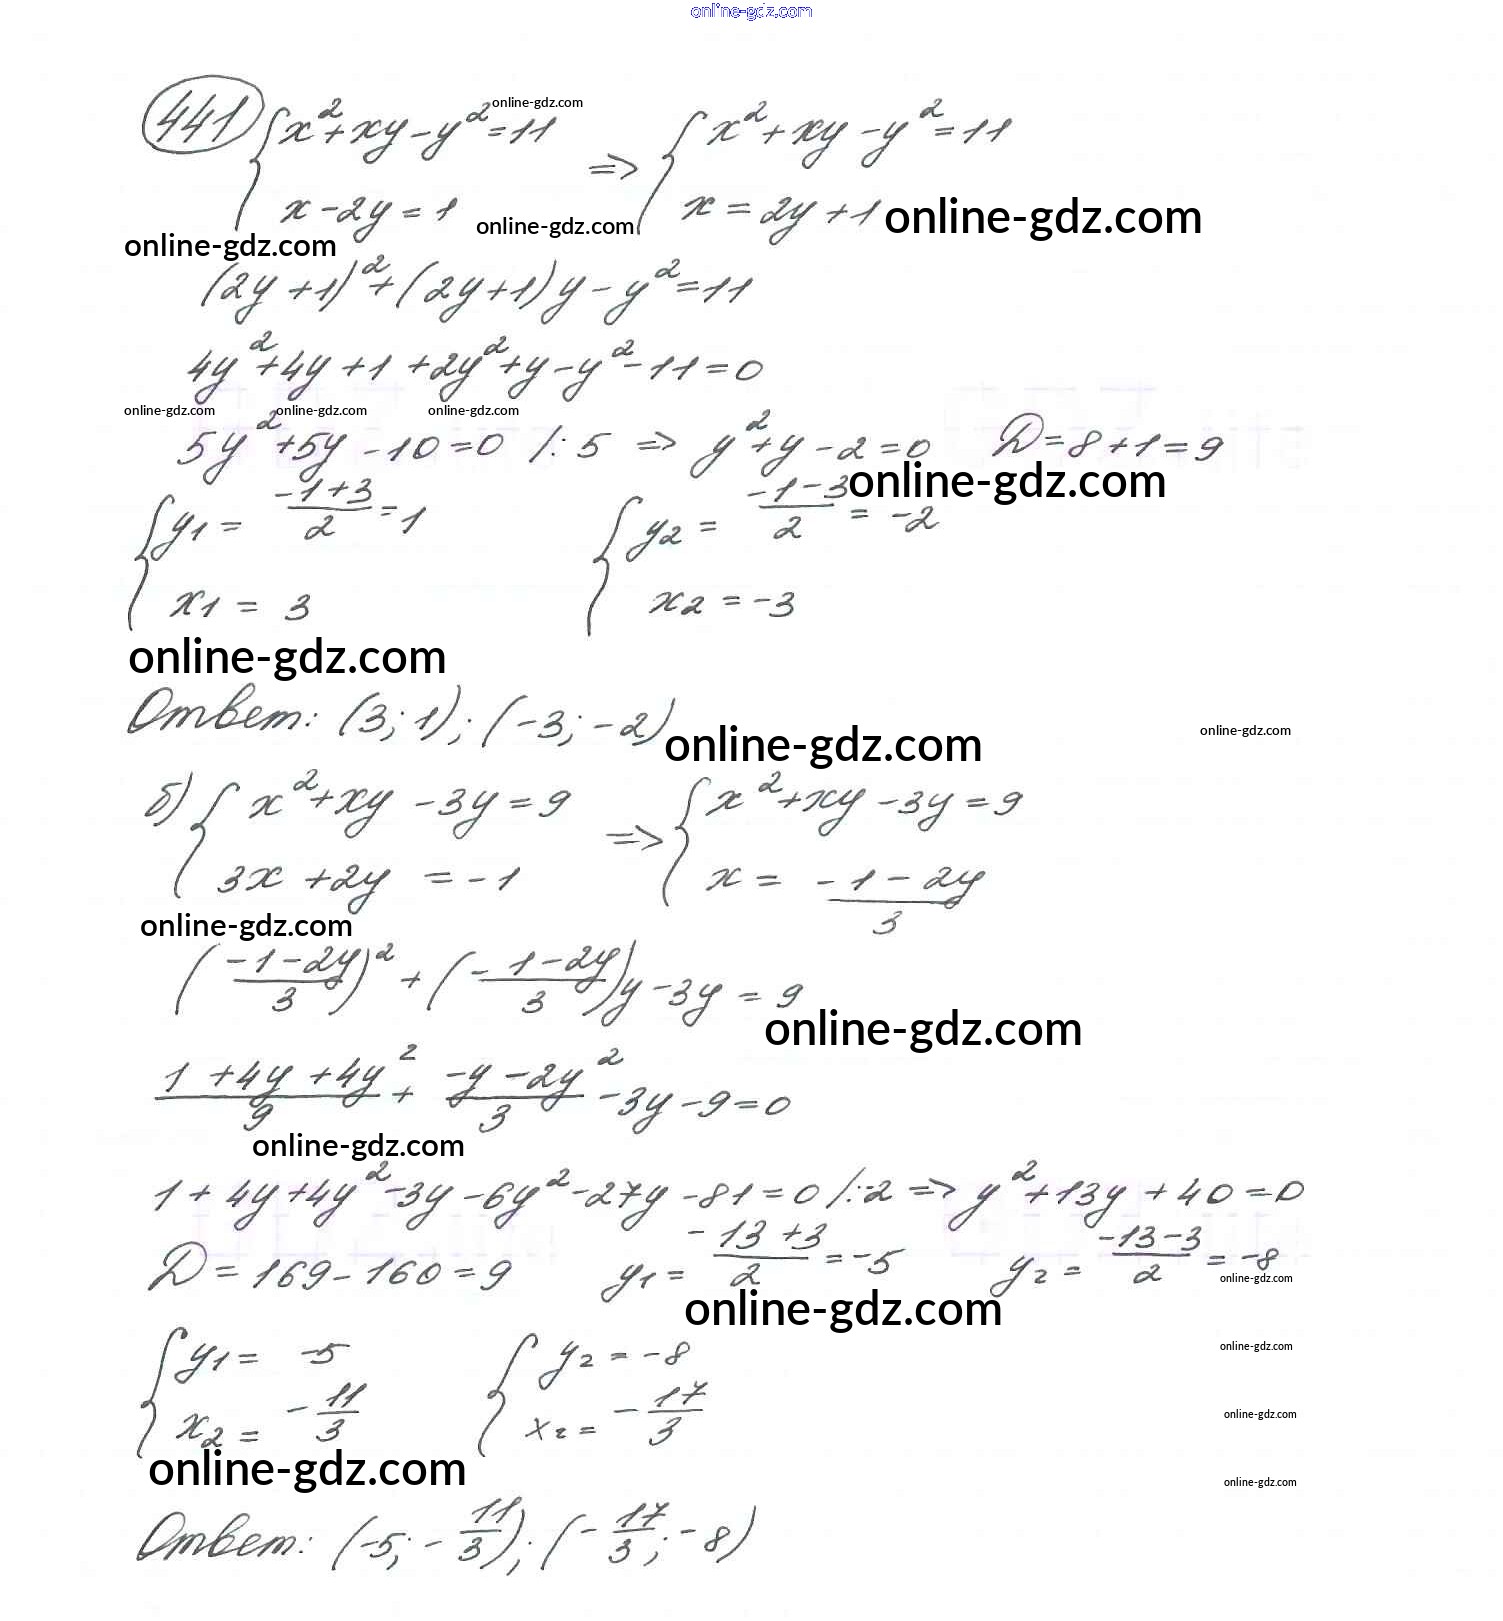 online-gdz.com
441 { x² + xy - y² = 11 online-gdz.com => { x² + xy - y² = 11
x - 2y = 1 online-gdz.com x = 2y + 1 online-gdz.com
online-gdz.com
(2y + 1)² + (2y + 1)y - y² = 11
4y² + 4y + 1 + 2y² + y - y² - 11 = 0
online-gdz.com online-gdz.com online-gdz.com
5y² + 5y - 10 = 0 /: 5 => y² + y - 2 = 0 D = 8 + 1 = 9
online-gdz.com
{ y1 = (-1+3)/2 = 1 { y2 = (-1-3)/2 = -2
x1 = 3 x2 = -3
online-gdz.com
Ответ: (3; 1); (-3; -2)
online-gdz.com online-gdz.com
б) { x² + xy - 3y = 9 => { x² + xy - 3y = 9
3x + 2y = -1 x = (-1-2y)/3
online-gdz.com
((-1-2y)/3)² + ((-1-2y)/3)y - 3y = 9
online-gdz.com
(1 + 4y + 4y²)/9 + (-y - 2y²)/3 - 3y - 9 = 0
online-gdz.com
1 + 4y + 4y² - 3y - 6y² - 27y - 81 = 0 /: -2 => y² + 13y + 40 = 0
D = 169 - 160 = 9 y1 = (-13+3)/2 = -5 y2 = (-13-3)/2 = -8
online-gdz.com online-gdz.com
{ y1 = -5 { y2 = -8 online-gdz.com
x2 = -11/3 x2 = -17/3 online-gdz.com
online-gdz.com online-gdz.com
Ответ: (-5; -11/3); (-17/3; -8)